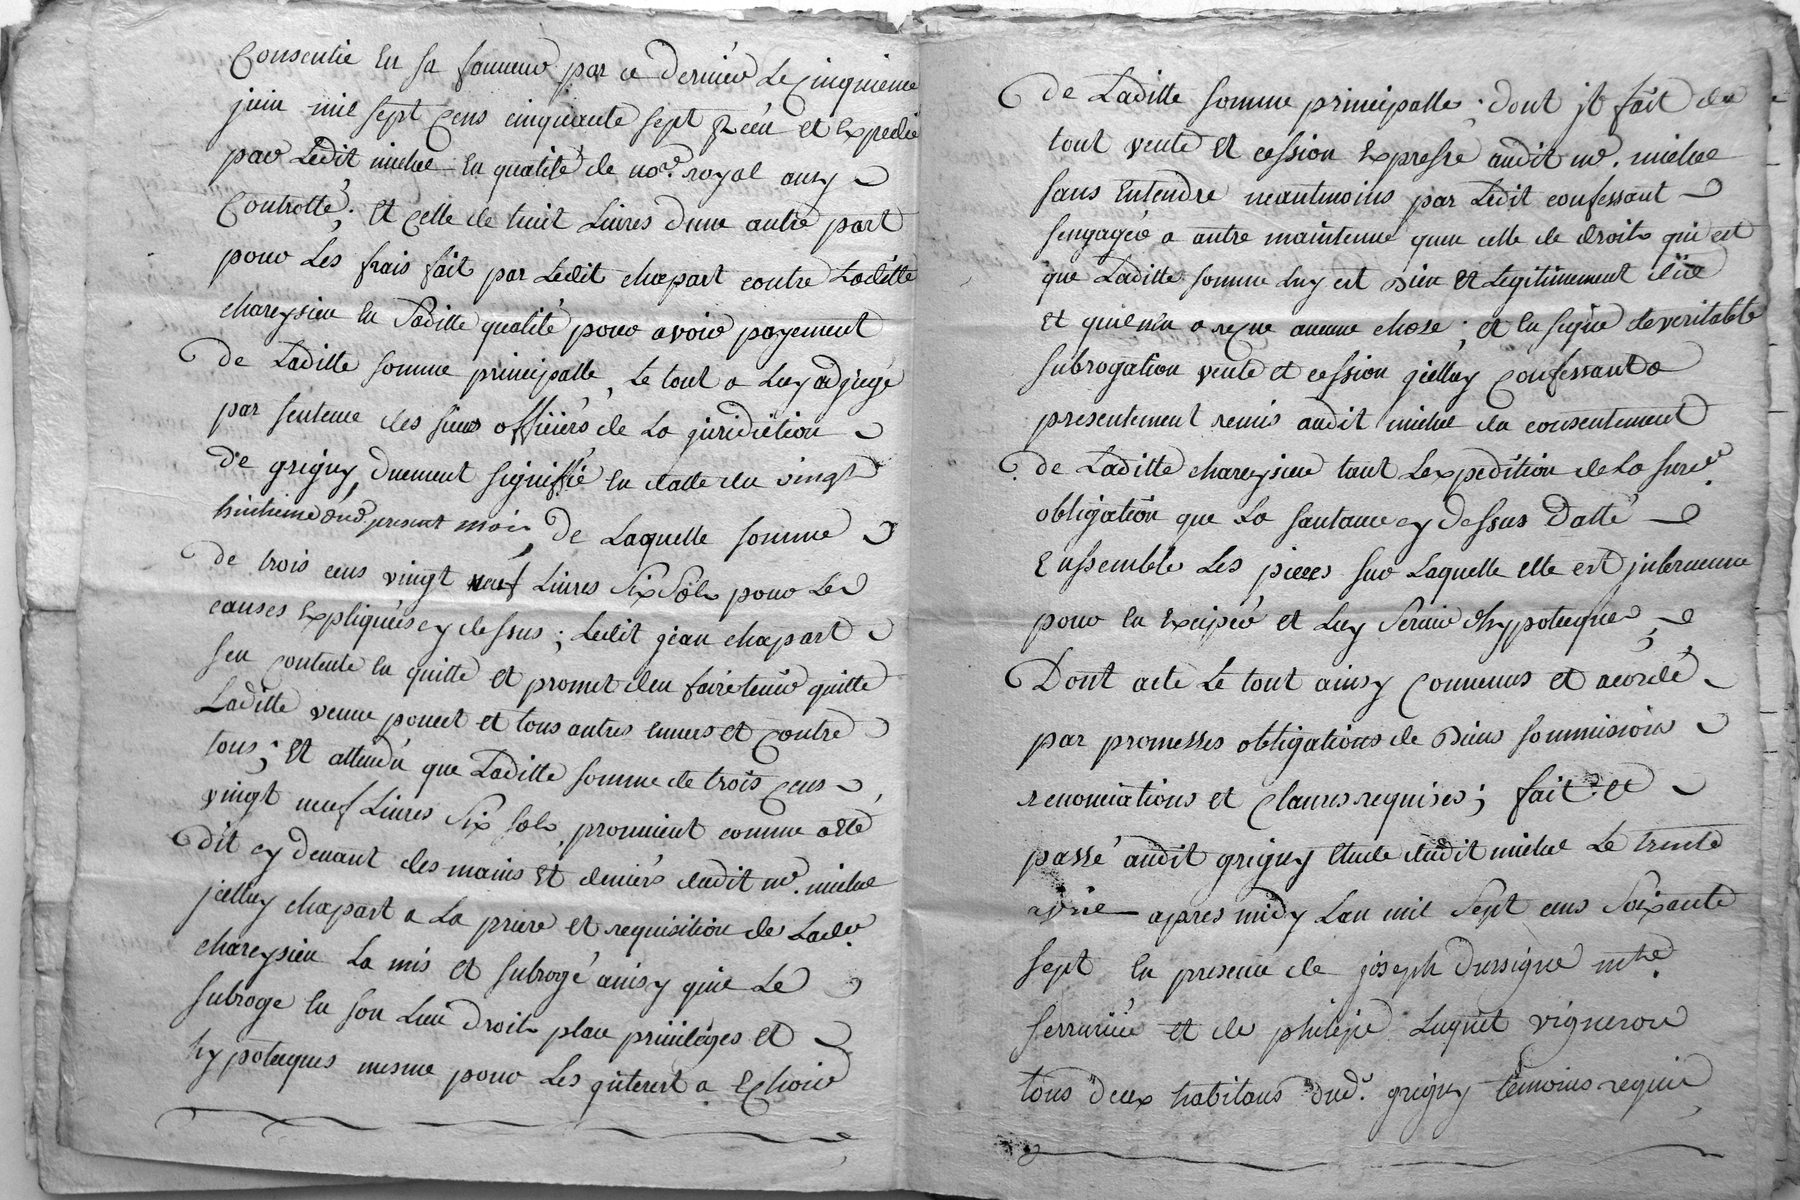 Consentie en sa faveur par ce dernier le cinquieme
juin mil sept cens cinquante sept recu et expedié
par ledit michel en qualité de nore. royal ausy
Controllé; et celle de huit livres dune autre part
pour les frais fait par ledit chapart contre laditte
chareysieu en laditte qualité pour avoir payement
de laditte somme principalle, le tout a luy adjugé
par sentence des sieurs officiers de la juridiction
de grigny, duement signiffié en datte du vingt
huitieme dud. present mois, de laquelle somme
de trois cens vingt neuf livres six sols pour les
causes expliquées cy dessus; ledit jean chapart
sen contente en quitte et promet den faire tenir quitte
laditte veuve poncet et tous autres envers et contre
tous; et attendu que laditte somme de trois cens
vingt neuf livres six sols, provient comme a eté
dit cy devant des mains et deniers dudit me. michel
jcelluy chapart a la priere et requisition de lade.
chareysieu la mis et subrogé ainsy quil le
subroge en son lieu droits place privileges et
hypoteques mesme pour les jnterest a echoir
de laditte somme principalle; dont jl fait du
tout vente et cession expresse audit me. michel
sans entendre neantmoins par ledit confessant
sengager a autre maintenue quen celle de droit qui est
que laditte somme luy est bien et legitimement düe
et quil nen a reçue aucune chose; et en signe de veritable
subrogation vente et cession jcelluy confessant a
presentement remis audit michel du consentement
de laditte chareysieu tant lexpedition de la susde.
obligation que la santance cy dessus datté
Enssemble les pieces sur laquelle elle est jntervenue
pour en exciper et luy servir dhypoteque;
Dont acte le tout ainsy convenus et acordé
par promesses obligations de biens sommissions
renonciations et clauses requises; fait et
passé audit grigny etude dudit michel le trente
avril apres midy lan mil sept cens soixante
sept en presence de joseph dussigne mtre.
serrurier et de philipe luquet vigneron
tous deux habitans dud. grigny temoins requis